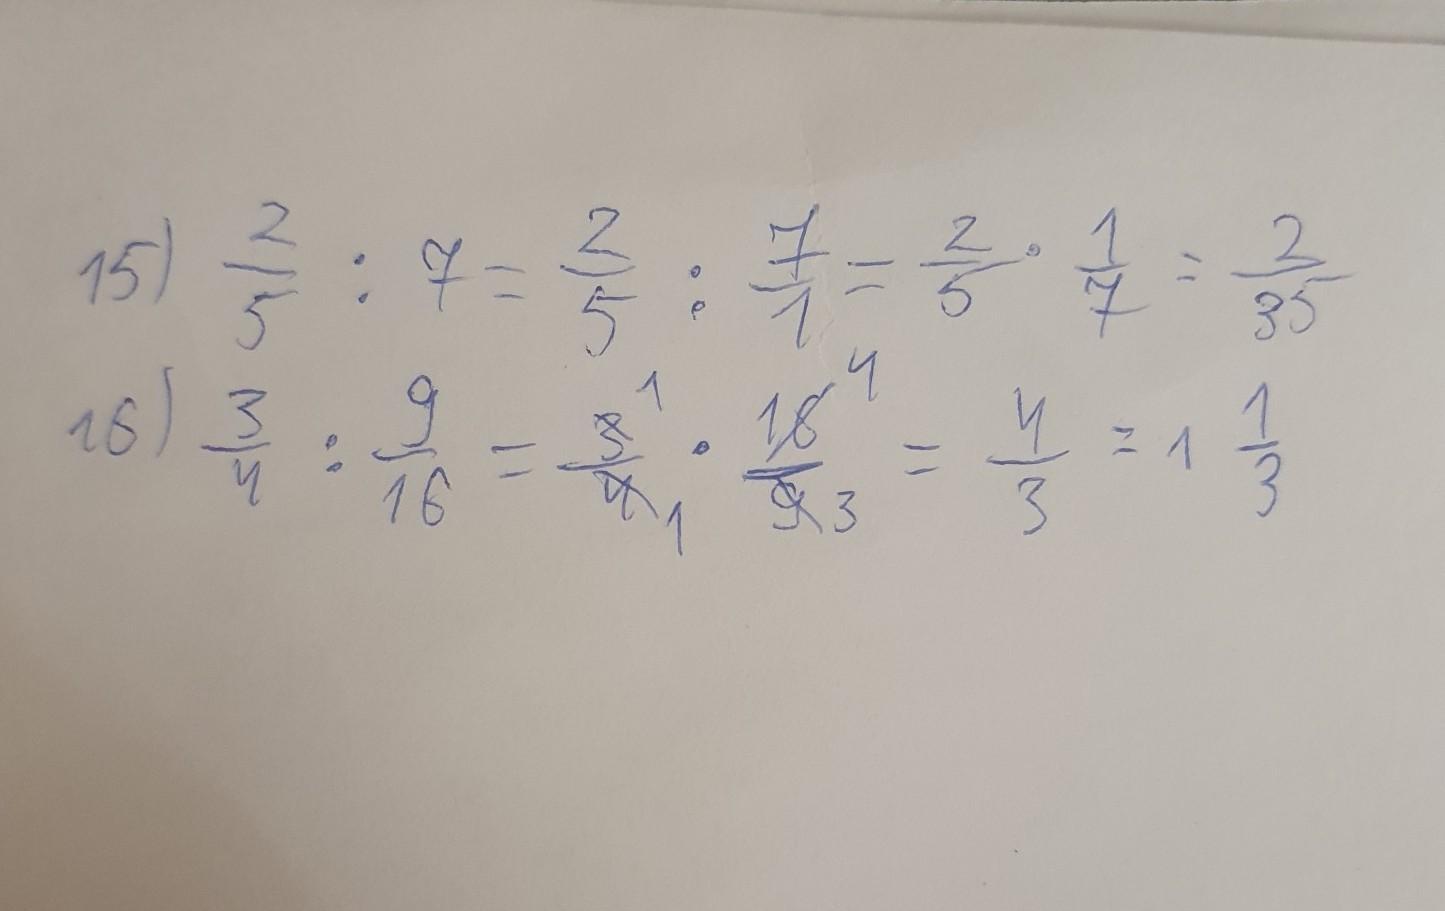 15) 2/5 : 7 = 2/5 : 7/1 = 2/5 · 1/7 = 2/35
16) 3/4 : 9/16 = 3̸¹/4̸₁ · 1̸6̸⁴/9̸₃ = 4/3 = 1 1/3